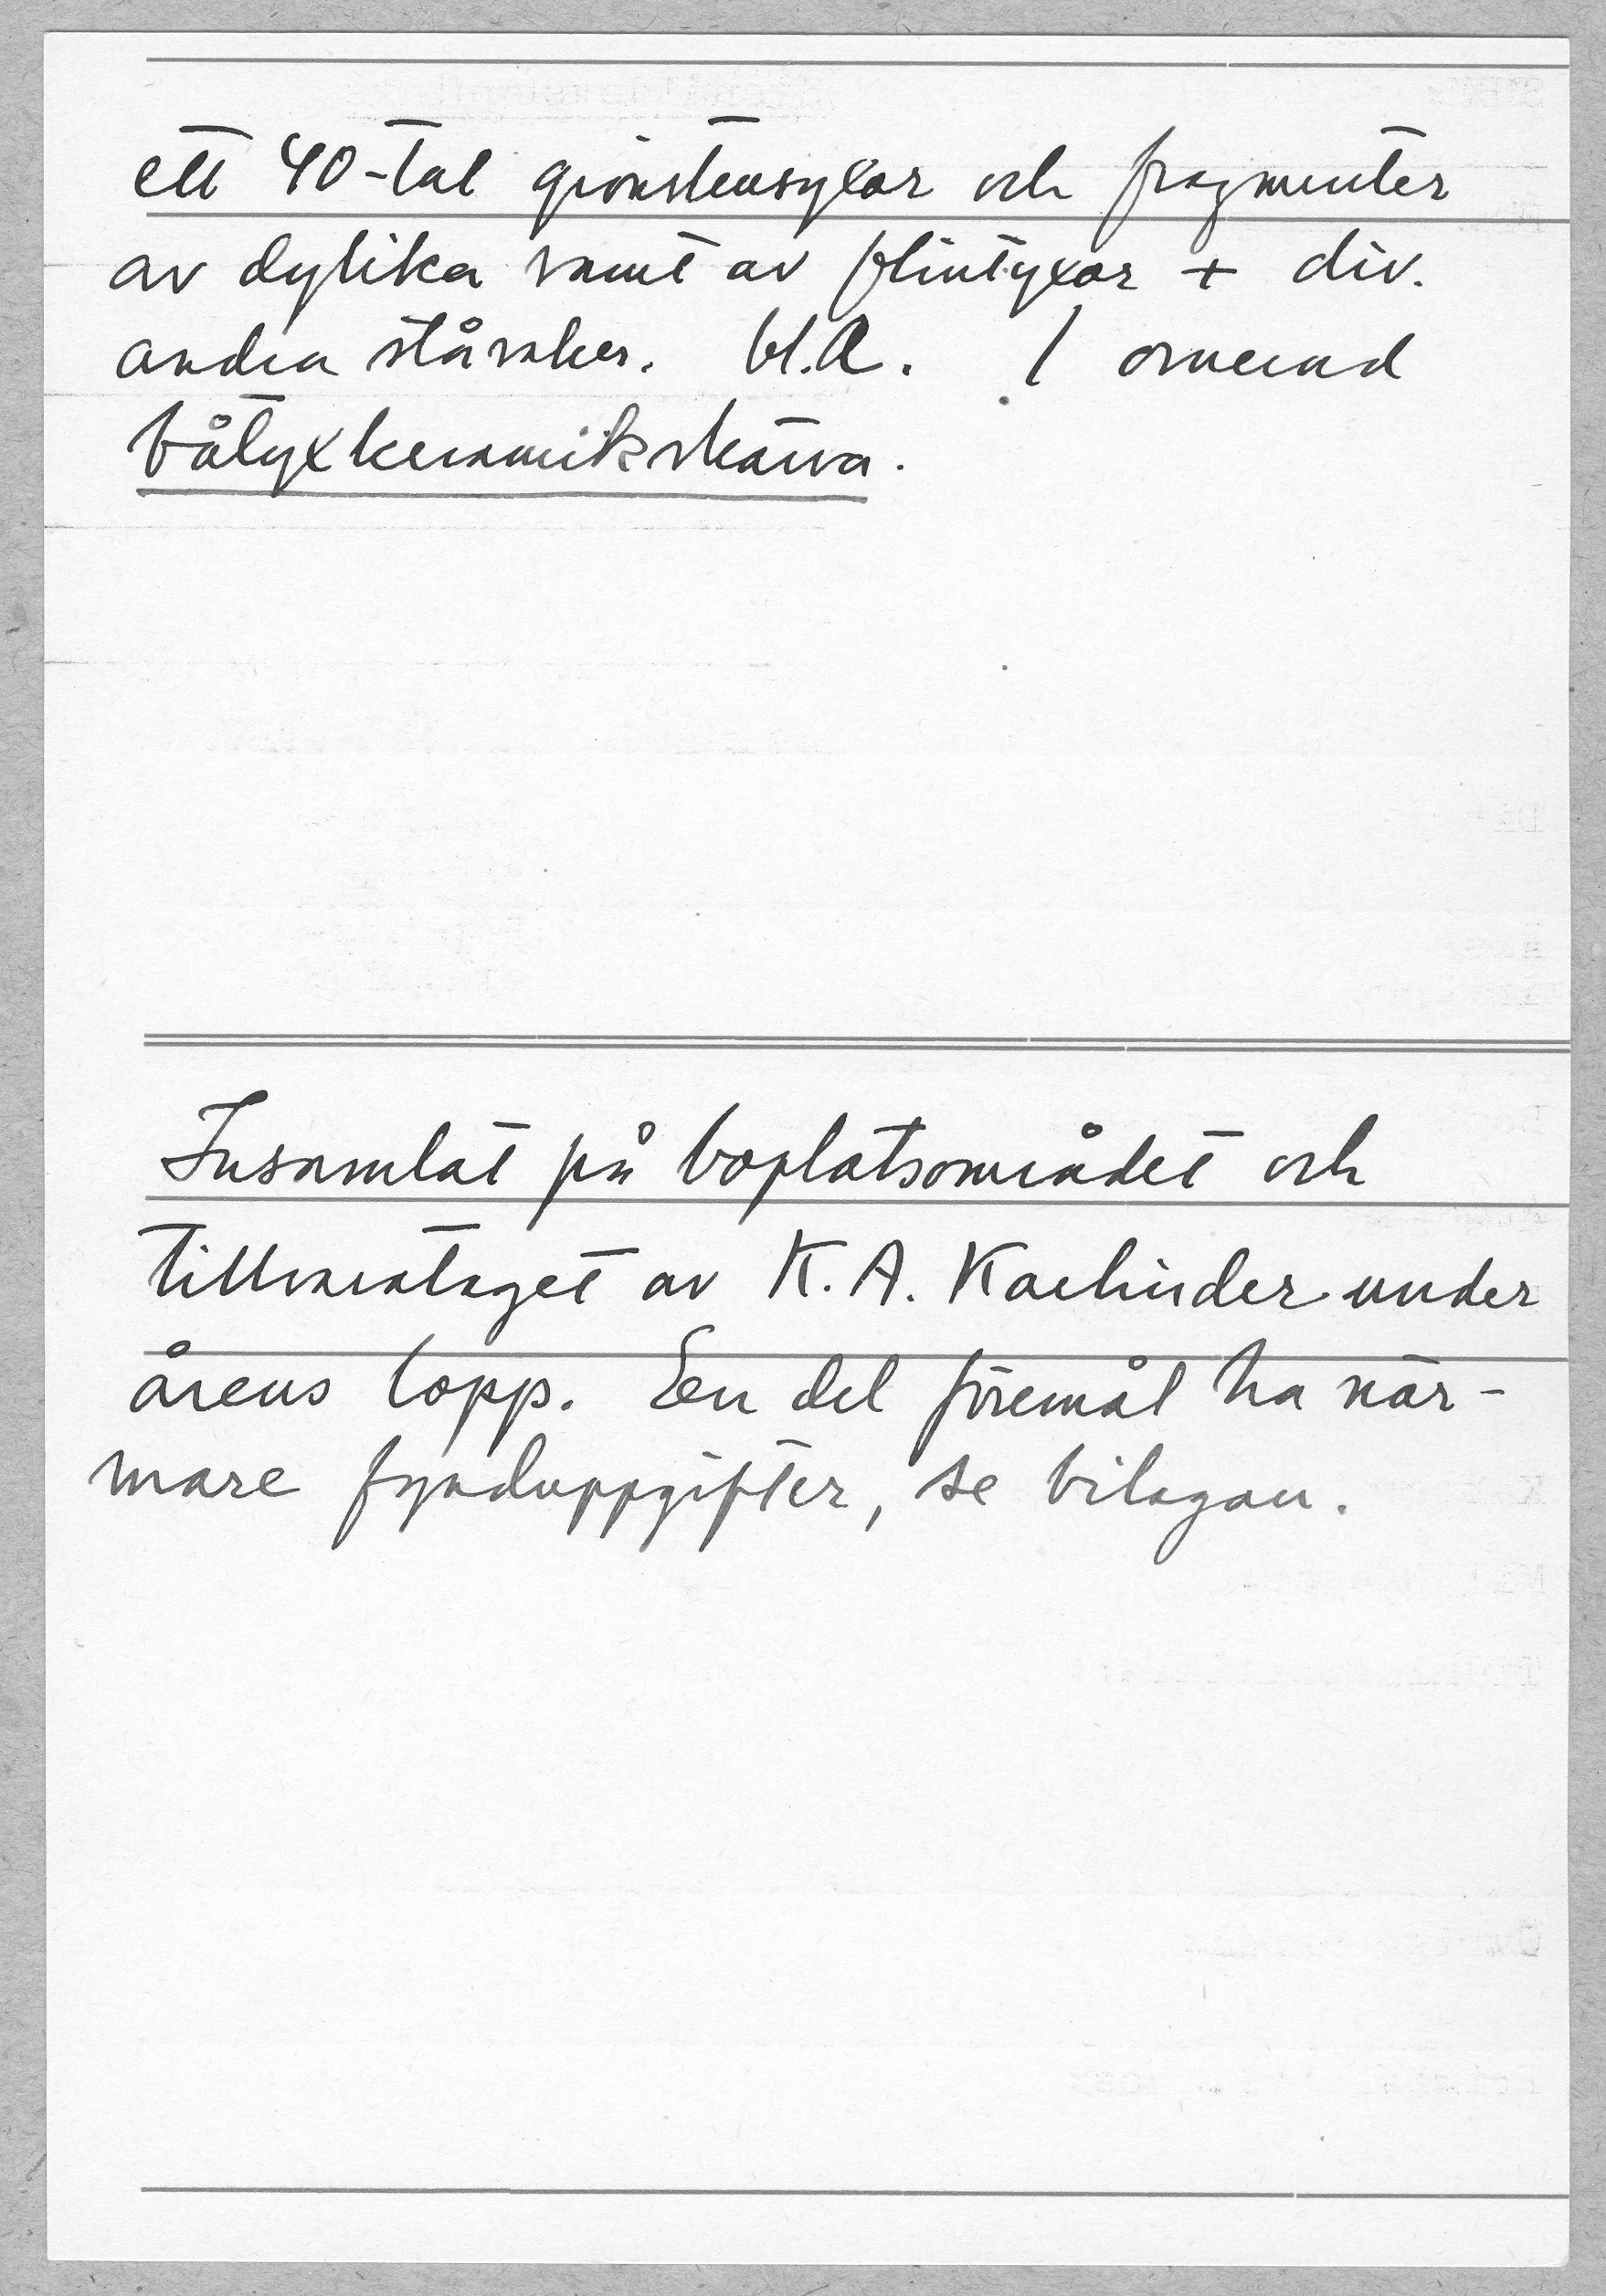 ett 40-tal grönstensyxor och fragmenter
av dylika samt av flintyxor + div.
andraståndsaker. bl.a. 1 ornerad
båtyxkeramikskärva.
Insamlat på boplatsområdet och
tillvarataget av K. A. Kaelinder under
årens lopp. En del föremål ha när-
mare fynduppgifter, se bilagan.